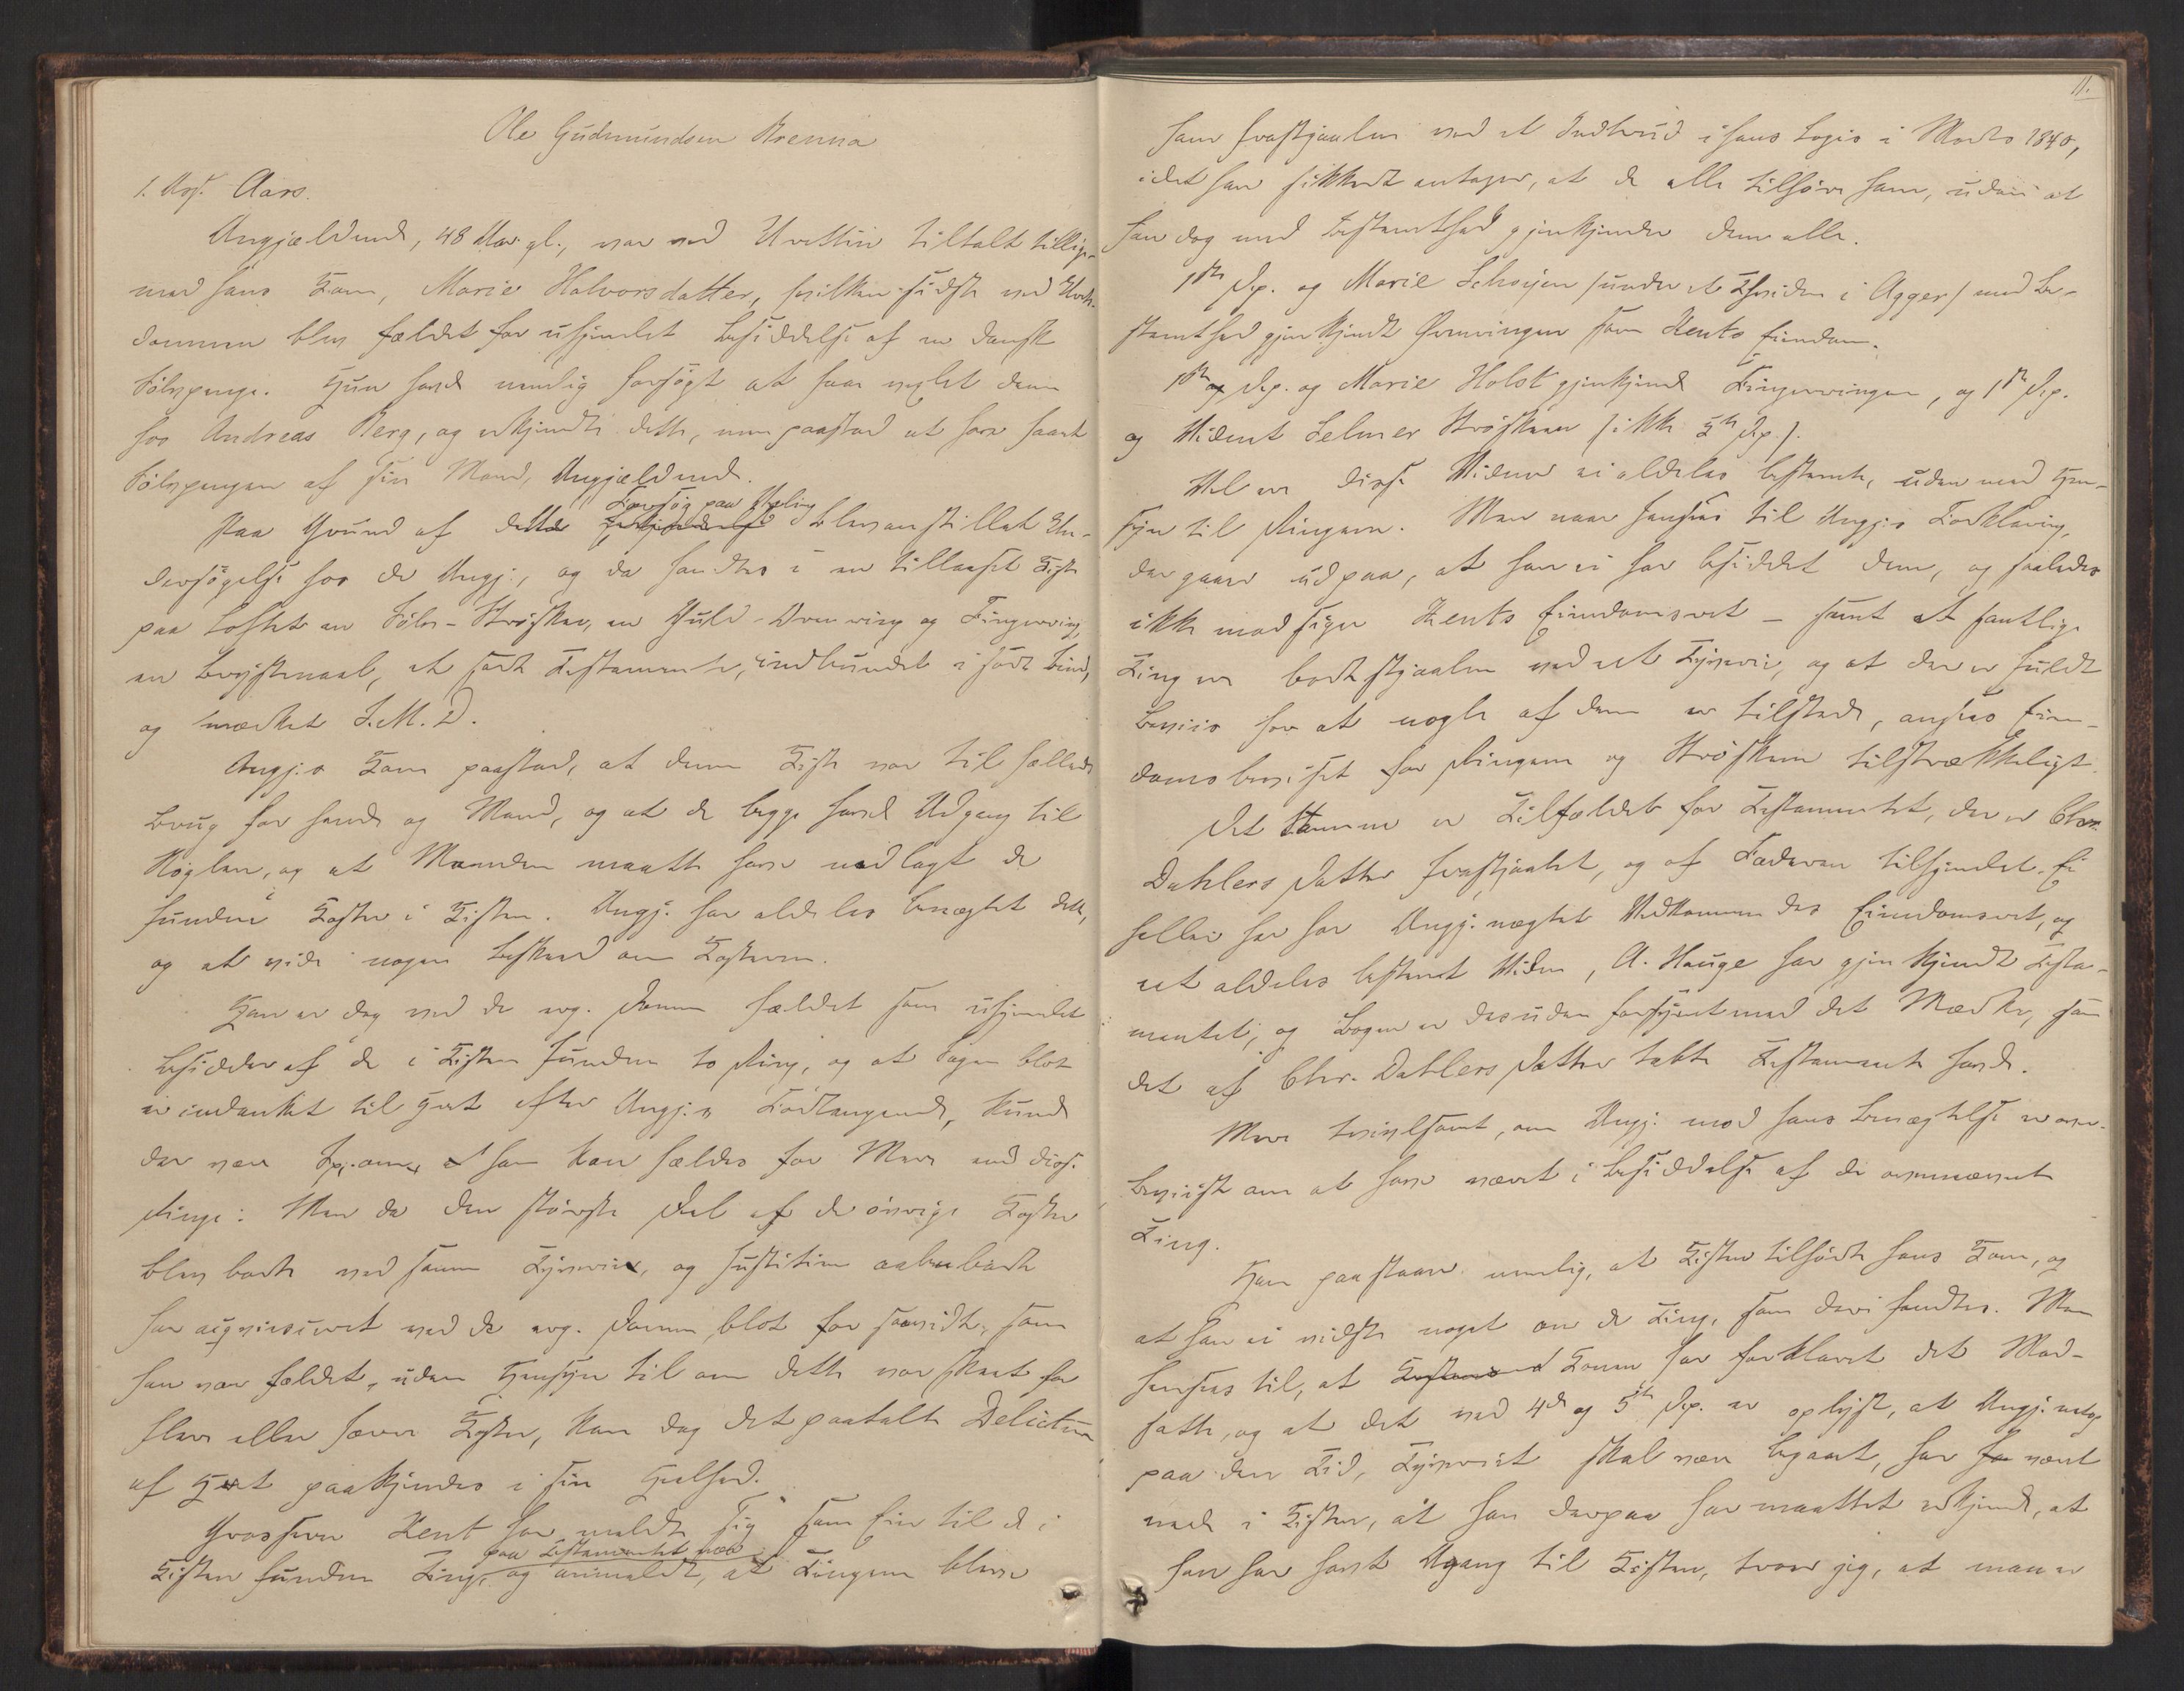 Ole Gudmundsen Brenna
1. Ass. Aars.
Angjældende, 48 Aar gl., var ved Uretten tiltalt tillige-
med hans Kone, Marie Halvorsdatter, hvilken sidste ved Unde-
dommen blev fældet for uhjemlet Besiddelse af en dansk
Sölvpenge. Hun havde nemlig forsögt at faae vexlet denne
hos Andreas Berg, og erkjendte dette, men paastod at have faaet
Sölvpengen af sin Mand, Angjældende.
Forsøg paa Vexling
Paa Grund af dette blev anstillet Un-
dersögelse hos de Angj., og da fandtes i en tillaaset Kiste
paa Loftet en Sölv-Ströskee, en Guld-Ørenring og Fingerring,
en Brystnaal, et sort Testamente, indbundet i sort Bind,
og mærket I. M. D.
Angj.s Kone paastod, at denne Kiste var til fælleds
Brug for hende og Mand, og at de begge havde Adgang til
Nøglen, og at Manden maatte have nedlagt de
fundne Koster i Kisten. Angj. har aldeles benægtet dette,
og at vide nogen Beskeed om Kosterne.
Han er dog ved de arg. Domme fældet som uhjemlet
Besidder af de i Kisten fundne to Ring, og at Sagen blot
er indanket til Hret efter Angj.s Forlangende, kunde
der være Spm. om, at han kan fældes for Mere end disse
Ringe: Men da den störste Deel af de övrige Koster
blev borte ved samme Tyverie, og Justitien aabenbart
har acquiesceret ved de arg. Domme, blot for saavidt, som
han var fældet, uden Hensyn til om dette var skeet for
flere eller færre Koster, kan dog det paatalte Delictum
af Hret paakjendes i sin Heelhed.
Grosserer Kent har meldt sig som Eier til de i
paa Testamentet nær
Kisten fundne Ting, og anmeldt, at Tingene bleve
11.
ham frastjaalne ved et Indbrud i hans Logis i Marts 1840,
idet han sikkert antager, at de alle tilhøre ham, uden at
han dog med Bestemthed gjenkjender dem alle.
1ste Dep. og Marie Schøyen (under et Thvidne i Agger) med Be-
stemthed gjenkjendt Ørenringen som Kents Eiendom.
1ste Dep. og Marie Holst gjenkjende Fingerringen, og 1ste Dep.
og Vidnet Selmer Ströskeen (ikke 5te Dep.).
Vel er disse Vidner ei aldeles bestemte, uden med Hen-
syn til Ringene. Men naar hensees til Angj.s Forklaring,
der gaaer ud paa, at han ei har besiddet dem, og saaledes
ikke modsiger Kents Eiendomsret – samt at samtlige
Ting er bortstjaalne ved et Tyverie, og at der er fuldt
Beviis for at nogle af dem er tilstede, ansees Eien-
domsbeviset for Ringene og Ströskeen tilstrækkeligt.
Det samme er Tilfældet for Testamentet, der er Chr.
Dahlers Datter frastjaalet, og af Faderen tilhjemlet. Ei
heller her har Angj. nægtet Vedkommendes Eiendomsret, og
eet aldeles bestemt Vidne, A. Hauge har gjenkjendt Testa-
mentet; og Bogen er desuden forsynet med det Mærke, som
det af Chr. Dahlers Datter tabte Testamente havde.
Mere tvivlsomt, om Angj. mod hans Benægtelse er over-
beviist om at have været i Besiddelse af de ovennævnte
Ting.
Han paastaaer nemlig, at Kisten tilhörte hans Kone, og
at han ei vidste noget om de Ting, som deri fandtes. Men
hensees til, at Konen har forklaret det Mod-
satte, og at det ved 4de og 5te Dep. er oplyst, at Angj. netop
paa den Tid, Tyveriet skal være begaaet, har været
nede i Kisten, at han derpaa har maattet erkjende, at
han har havt Adgang til Kisten, troer jeg, at man er